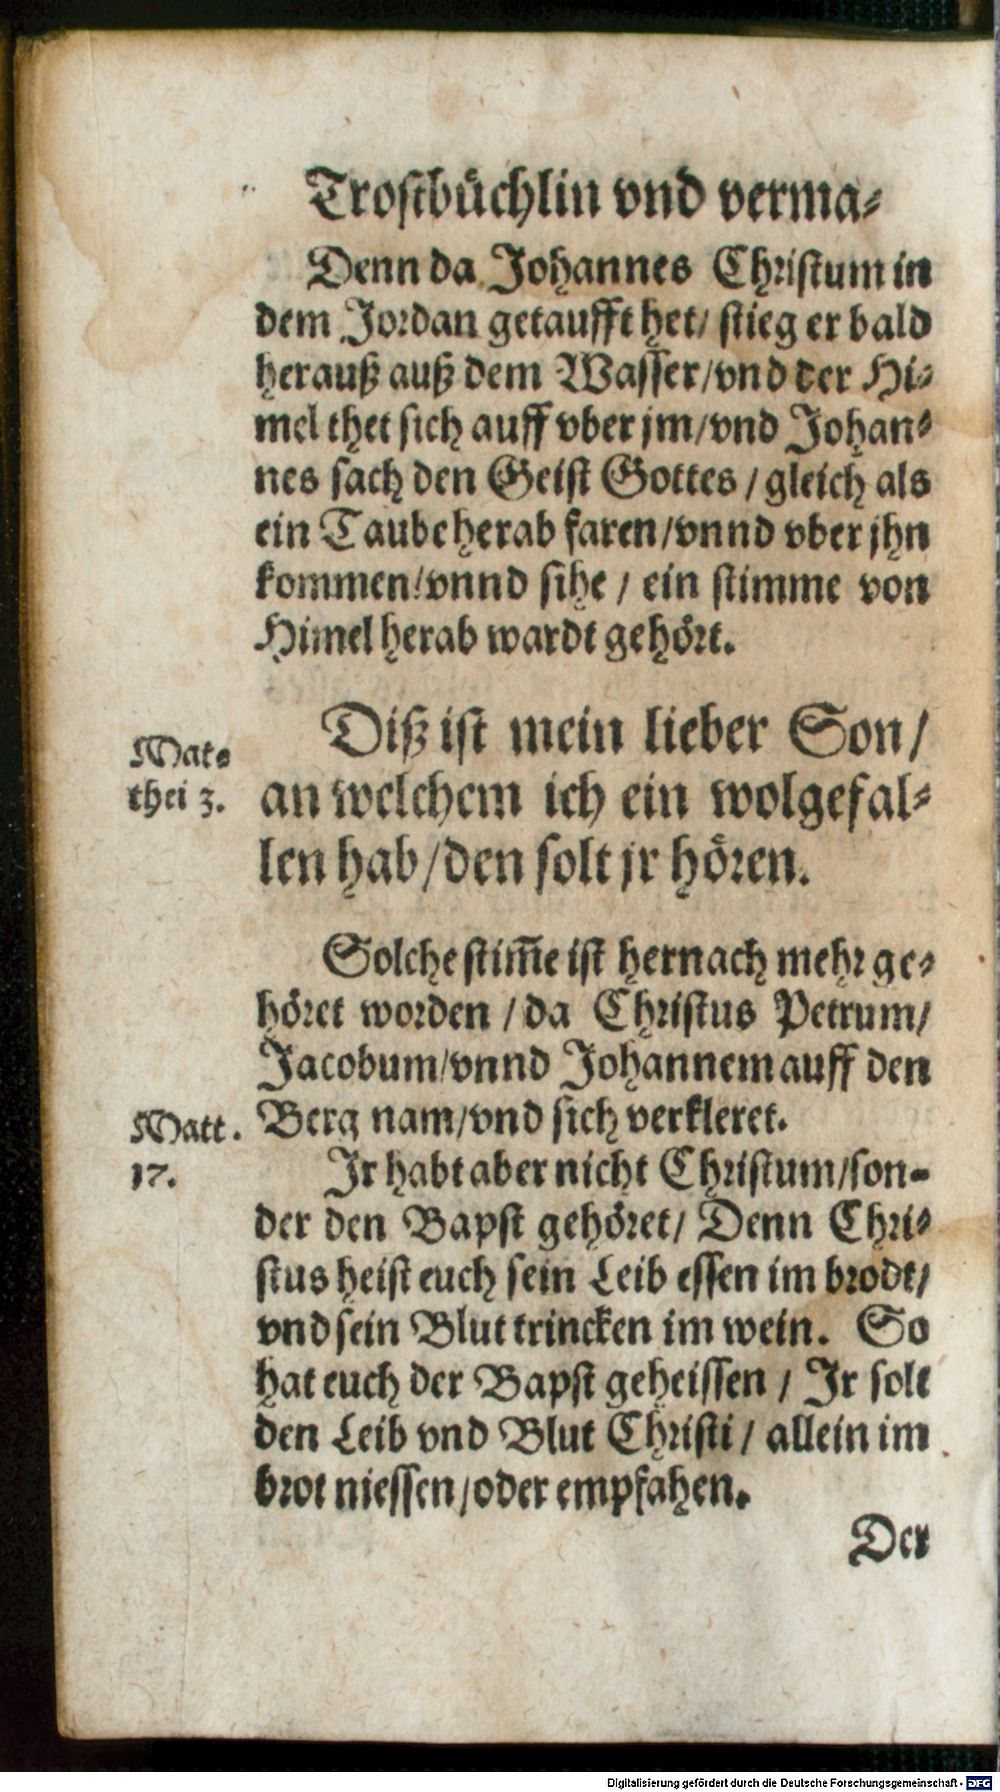 Trostbüchlin vnd verma⸗
Denn da Johannes Christum in
dem Jordan getaufft het/ stieg er bald
herauß auß dem Wasser/vnd der Hi⸗
mel thet sich auff vber jm/vnd Johan⸗
nes sach den Geist Gottes / gleich als
ein Taube herab faren/vnnd vber jhn
kommen/vnnd sihe / ein stimme von
Himel herab wardt gehört.
Diß ist mein lieber Son/
Mat⸗
thei 3.
an welchem ich ein wolgefal⸗
len hab/den solt jr hören.
Solche stim̃e ist hernach mehr ge⸗
höret worden / da Christus Petrum/
Jacobum/vnnd Johannem auff den
Berg nam/vnd sich verkleret.
Matt.
17.
Jr habt aber nicht Christum/son⸗
der den Bapst gehöret/ Denn Chri⸗
stus heist euch sein Leib essen im brodt/
vnd sein Blut trincken im wein. So
hat euch der Bapst geheissen / Jr solt
den Leib vnd Blut Christi / allein im
brot niessen/oder empfahen.
Der
Digitalisierung gefördert durch die Deutsche Forschungsgemeinschaft - DFG